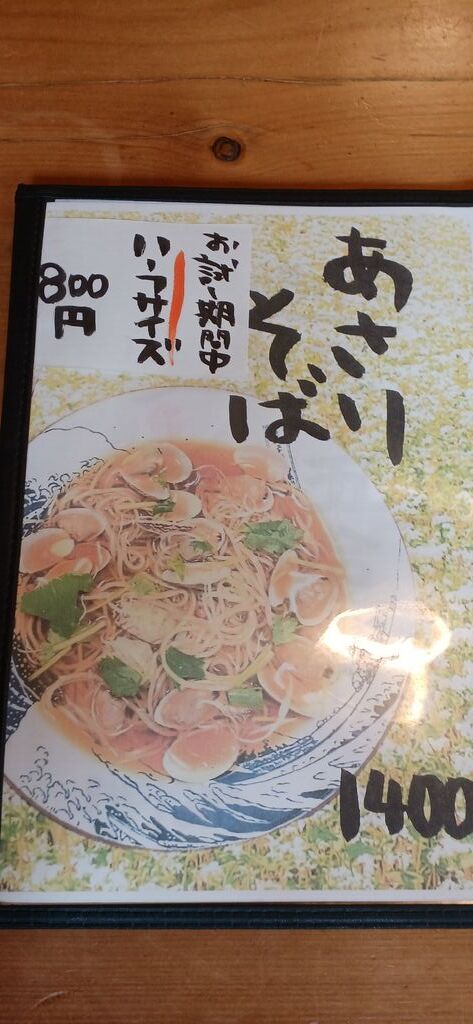 あさり
そば
お試し期間中
ハーフサイズ
800
円
1400